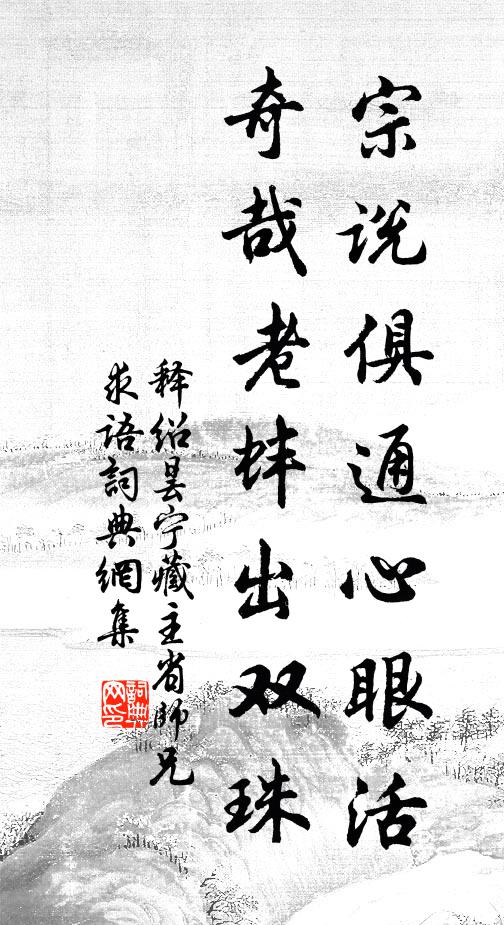 宗说俱通心眼活
奇哉老蚌出双珠
释绍昙宁藏主省師兄
求语詞典網集
詞典
网印